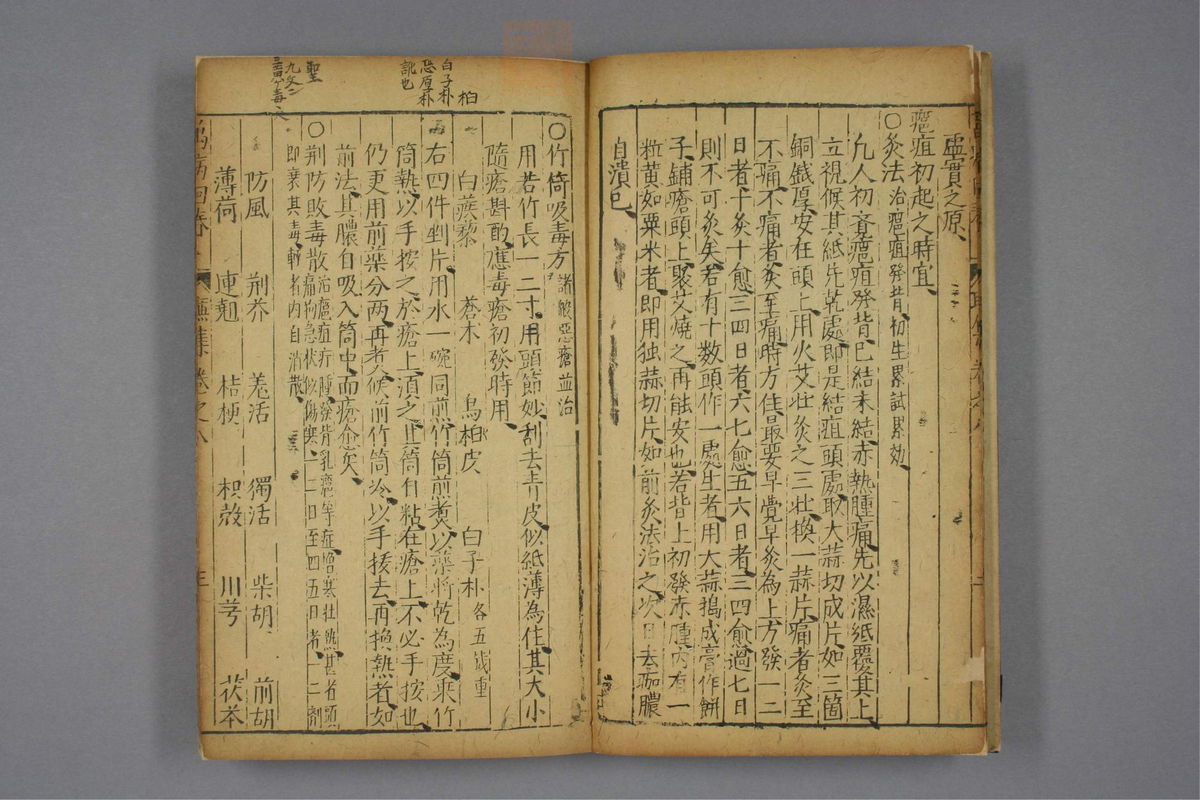 虛實之原、
癰疽初起之時宜、
○灸法治癰疽發背初生累試累効
凡人初發癰疽發背已結未結赤熱腫痛先以濕紙覆其上
立視候其紙先乾處即是結疽頭處取大蒜切成片如三箇
銅錢厚安在頭上用火艾壯灸之三壯換一蒜片痛者灸至
不痛不痛者灸至痛時方住最要早覺早灸為上方發一二
日者十灸十愈三四日者六七愈五六日者三四愈過七日
則不可灸矣若有十数頭作一處生者用大蒜搗成膏作餅
子鋪瘡頭上聚艾燒之再能安也若背上初發赤腫內有一
粒黄如粟米者即用独蒜切片如前灸法治之次日去痂膿
自潰已
柏
白子朴
恐厚朴
訛也
聖
○竹筒吸毒方諸般惡瘡並治
用若竹長一二寸用頭節妙刮去青皮似紙薄為佳其大小
隨瘡斟酌應毒瘡初發時用
白蒺藜 蒼朮 烏柏皮 白子朴各五錢重
右四件剉片用水一碗同前竹筒煎煮以藥將乾為度乘竹
筒熱以手按之於瘡上須之其筒自粘在瘡上不必手按也
仍更用前藥分两再煮候前竹筒冷以手拔去再換熱者如
前法其膿自吸入筒中而瘡愈矣
○荆防敗毒散治癰疽疔腫發背乳癰等症憎寒壮熱甚者頭
痛拘急狀似傷寒一二日至四五日者一二劑
即衰其毒輕者內自消散
防風 荆芥 羗活 獨活 柴胡 前胡
薄荷 連翹 桔梗 枳殼 川芎 茯苓
萬病回春 卷之八